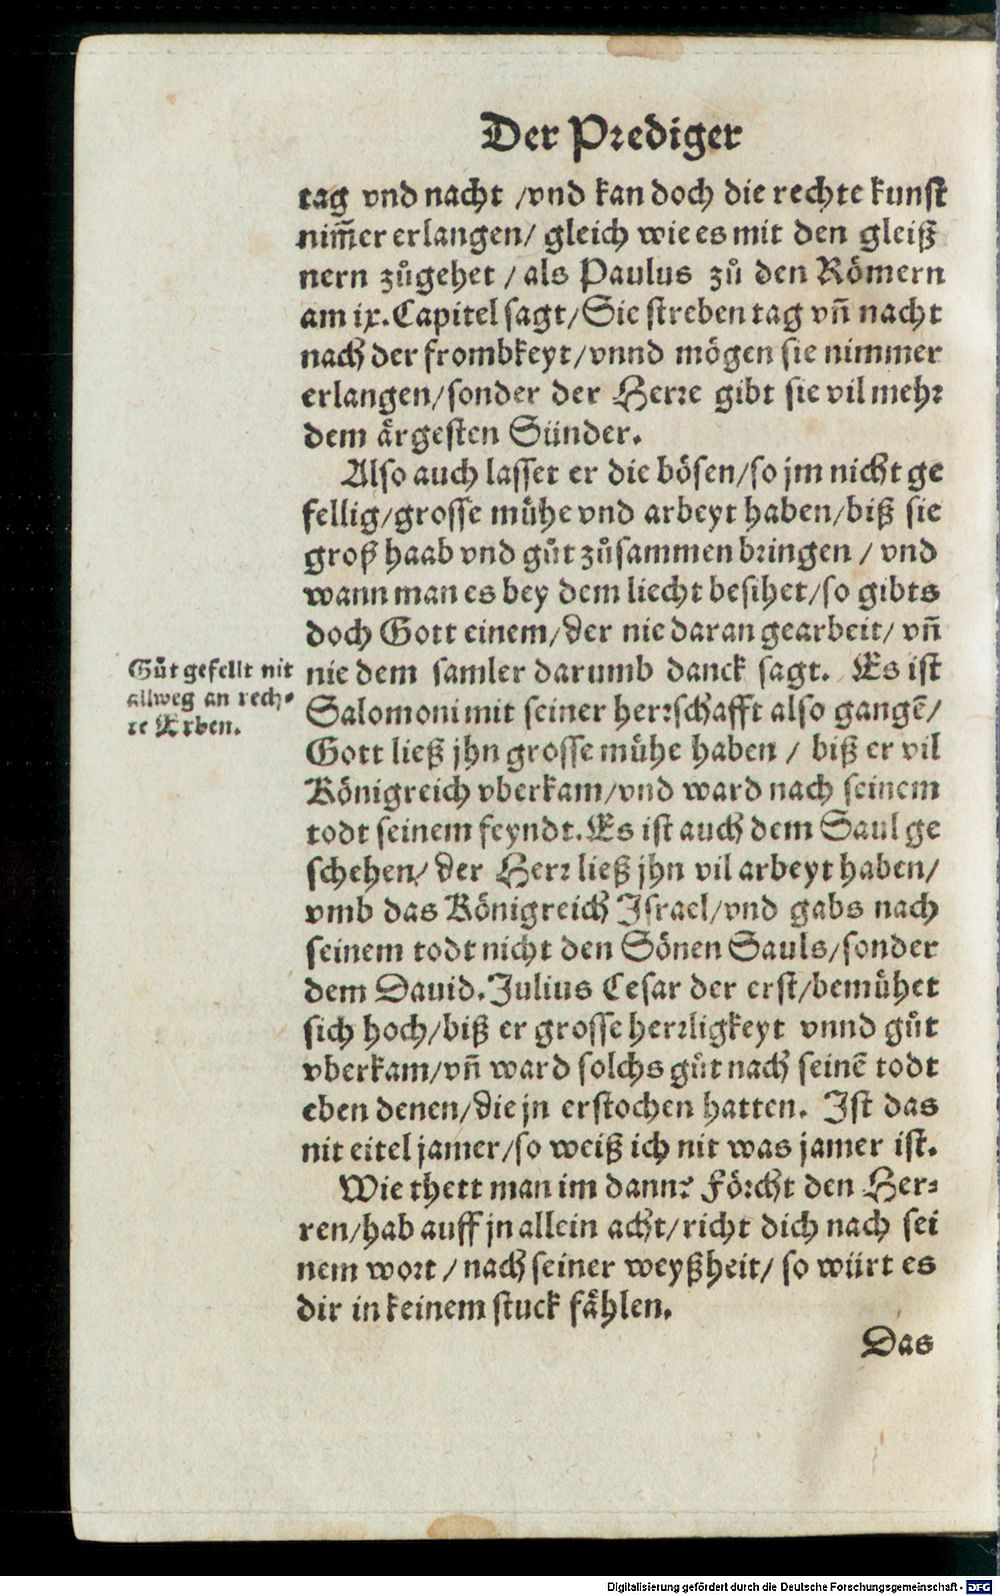 Der Prediger
tag vnd nacht /vnd kan doch die rechte kunst
nim̃er erlangen/ gleich wie es mit den gleiß
nern zůgehet / als Paulus zů den Römern
am ix. Capitel sagt/Sie streben tag vñ nacht
nach der frombkeyt/vnnd mögen sie nimmer
erlangen/sonder der Herre gibt sie vil mehr
dem ärgesten Sünder.
Also auch lasset er die bösen/so jm nicht ge
fellig/grosse mühe vnd arbeyt haben/biß sie
groß haab vnd gůt zůsammen bringen / vnd
wann man es bey dem liecht besihet/so gibts
doch Gott einem/der nie daran gearbeit/ vñ
nie dem samler darumb danck sagt. Es ist
Gůt gefellt nit
allweg an rech-
te Erben.
Salomoni mit seiner herrschafft also gangẽ/
Gott ließ jhn grosse mühe haben / biß er vil
Königreich vberkam/vnd ward nach seinem
todt seinem feyndt. Es ist auch dem Saul ge
schehen/ der Herr ließ jhn vil arbeyt haben/
vmb das Königreich Israel/vnd gabs nach
seinem todt nicht den Sönen Sauls/sonder
dem Dauid. Julius Cesar der erst/bemühet
sich hoch/biß er grosse herrligkeyt vnnd gůt
vberkam/vñ ward solchs gůt nach seinẽ todt
eben denen/die jn erstochen hatten. Ist das
nit eitel jamer/so weiß ich nit was jamer ist.
Wie thett man im dann? Förcht den Her-
ren/hab auff jn allein acht/richt dich nach sei
nem wort / nach seiner weyßheit/ so würt es
dir in keinem stuck fählen.
Das
Digitalisierung gefördert durch die Deutsche Forschungsgemeinschaft - DFG